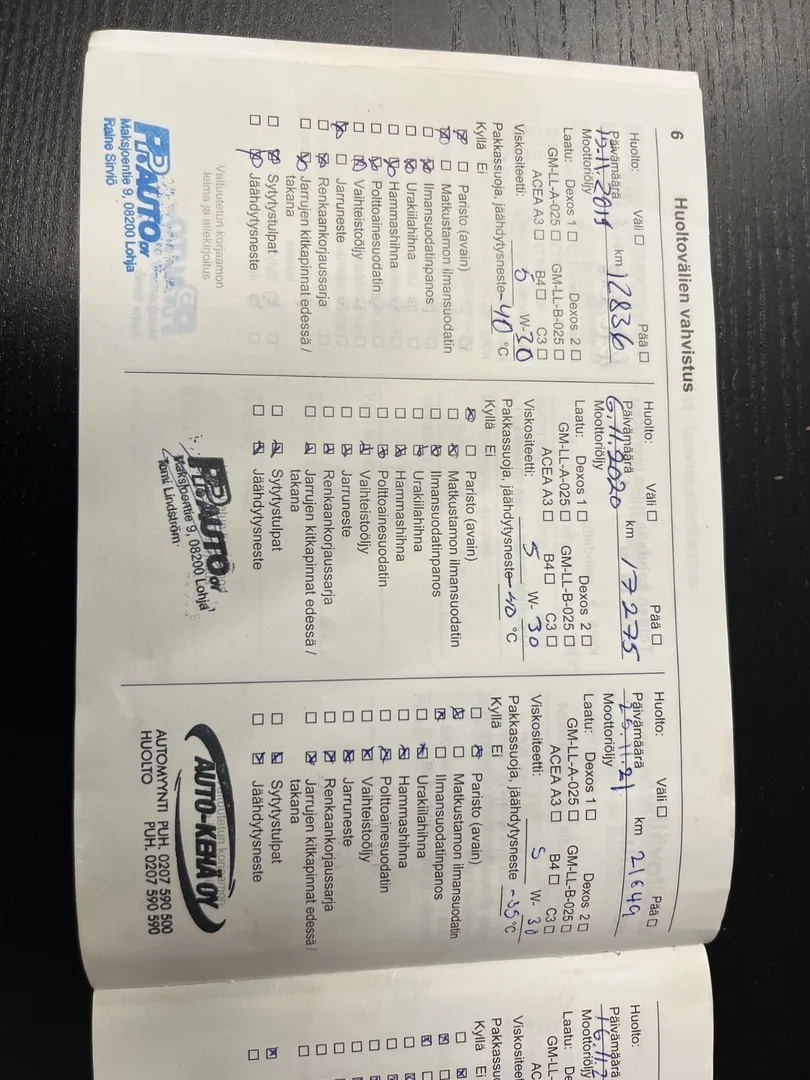 6
Huoltovälien vahvistus
Huolto: Väli Pää
Päivämäärä km 12836
Moottoriöljy
Laatu: Dexos 1 Dexos 2
GM-LL-A-025 GM-LL-B-025
ACEA A3 B4 C3
Viskositeetti: 5 W-30
Pakkassuoja, jäähdytysneste -40 °C
Kyllä Ei
Paristo (avain)
Matkustamon ilmansuodatin
Ilmansuodatinpanos
Urakiilahihna
Hammashihna
Polttoainesuodatin
Vaihteistoöljy
Jarruneste
Renkaankorjaussarja
Jarrujen kitkapinnat edessä /
takana
Sytytystulpat
Jäähdytysneste
Valtuutetun korjaamon
leima ja allekirjoitus
PP AUTO OY
Maksjoentie 9, 08200 Lohja
Raine Sirviö
Huolto: Väli Pää
Päivämäärä 6.11.2020 km 17275
Moottoriöljy
Laatu: Dexos 1 Dexos 2
GM-LL-A-025 GM-LL-B-025
ACEA A3 B4 C3
Viskositeetti: 5 W-30
Pakkassuoja, jäähdytysneste -40 °C
Kyllä Ei
Paristo (avain)
Matkustamon ilmansuodatin
Ilmansuodatinpanos
Urakiilahihna
Hammashihna
Polttoainesuodatin
Vaihteistoöljy
Jarruneste
Renkaankorjaussarja
Jarrujen kitkapinnat edessä /
takana
Sytytystulpat
Jäähdytysneste
PP AUTO OY
Maksjoentie 9, 08200 Lohja
Tomi Lindström
Huolto: Väli Pää
Päivämäärä 25.11.21 km 21649
Moottoriöljy
Laatu: Dexos 1 Dexos 2
GM-LL-A-025 GM-LL-B-025
ACEA A3 B4 C3
Viskositeetti: 5 W-30
Pakkassuoja, jäähdytysneste -35 °C
Kyllä Ei
Paristo (avain)
Matkustamon ilmansuodatin
Ilmansuodatinpanos
Urakiilahihna
Hammashihna
Polttoainesuodatin
Vaihteistoöljy
Jarruneste
Renkaankorjaussarja
Jarrujen kitkapinnat edessä /
takana
Sytytystulpat
Jäähdytysneste
AUTO-KEHÄ OY
AUTOMYYNTI PUH. 0207 590 500
HUOLTO PUH. 0207 590 590
Huolto:
Päivämäärä
16.11.2
Moottoriöljy
Laatu: De
GM-LL-
AC
Viskositeet
Pakkassuo
Kyllä Ei